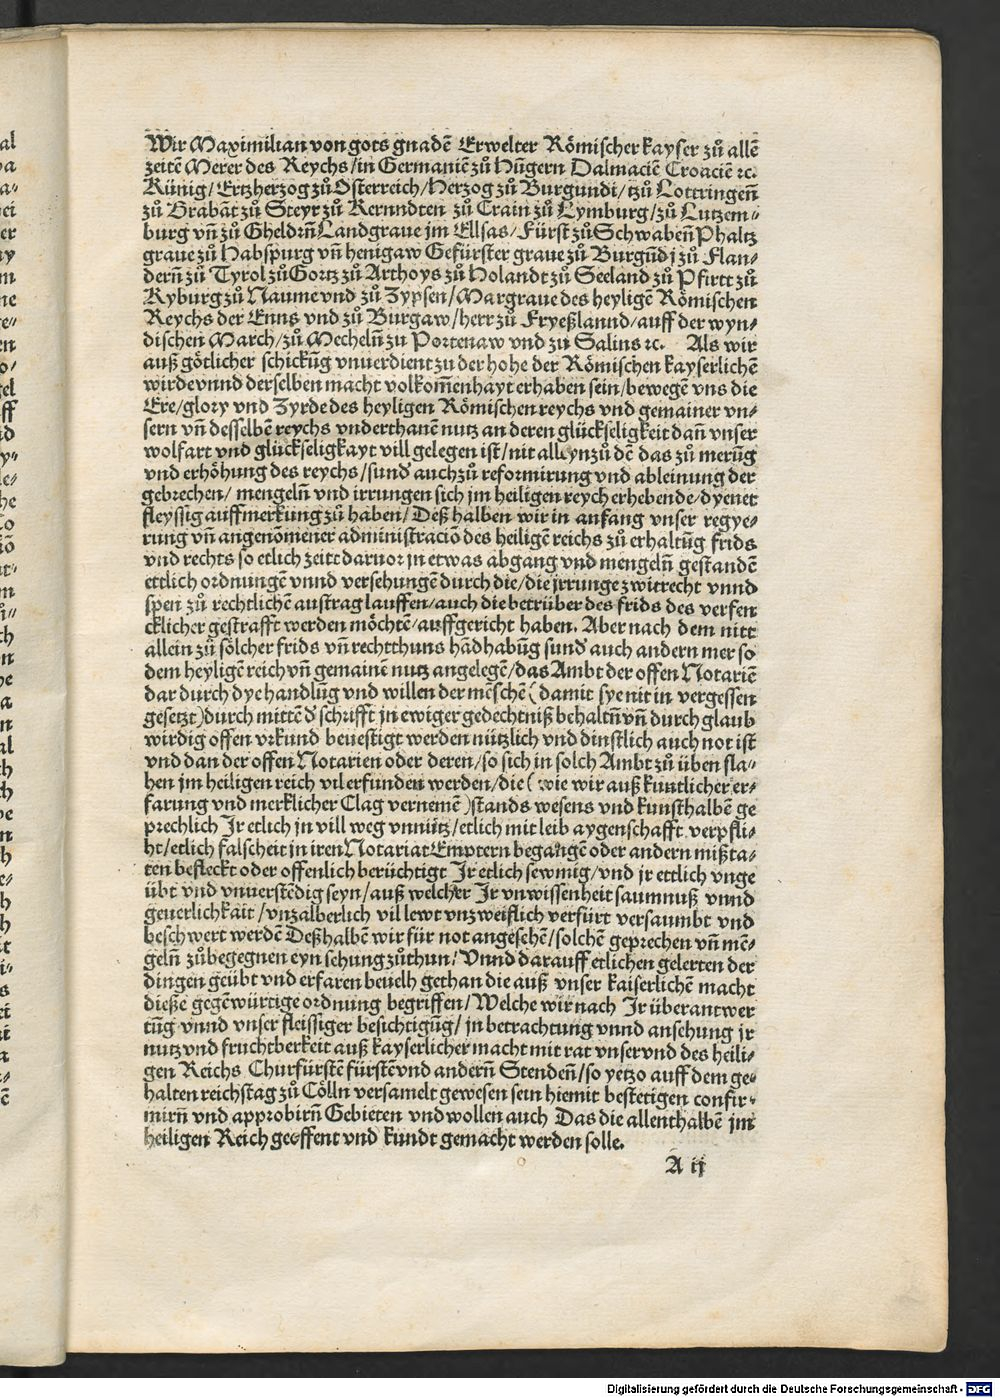 Wir Maximilian von gots gnadē Erwelter Römischer kayser zů allē
zeitē Merer des Reychs/in Germaniē zů Hūgern Dalmaciē Croaciē ꝛc.
Künig/Ertzherzog zů Osterreich/Herzog zů Burgundi/tzů Lottringen̄
zů Brabāt zů Steyr zů Kernndten zů Crain zů Lymburg/zů Lutzem⸗
burg vn̄ zů Gheldrn̄ Landgraue jm Ellsas/Fürst zů Schwaben̄ Phaltz
graue zů Habspurg vn̄ henigaw Gefürster graue zů Burgūdj zů Flan⸗
dern̄ zů Tyrol zů Gortz zů Arthoys zů Holandt zů Seeland zů Pfirtt zů
Kyburg zů Naume vnd zů Zypsen/Margraue des heyligē Römischen
Reychs der Enns vnd zů Burgaw/herr zů Fryeßlannd/auff der wyn⸗
dischen March/zů Mecheln̄ zů Portenaw vnd zů Salins ꝛc. Als wir
auß götlicher schickūg vnuerdient zu der hohe der Römischen kayserlichē
wirde vnnd derselben macht volkom̄enhayt erhaben sein/bewegē vns die
Ere/glory vnd Zyrde des heyligen Römischen reychs vnd gemainer vn⸗
sern vn̄ desselbē reychs vnderthanē nutz an deren glückseligkeit dan̄ vnser
wolfart vnd glückseligkayt vill gelegen ist/nit alleynzů dē das zů merūg
vnd erhöhung des reychs/sund̕ auch zů reformirung vnd ableinung der
gebrechen/ mengeln̄ vnd irrungen sich jm heiligen reych erhebende/dyenet
fleyssig auffmerkung zů haben/Deß halben wir in anfang vnser regye⸗
rung vn̄ angenōmener administraciō des heiligē reichs zů erhaltūg frids
vnd rechts so etlich zeitt daruor jn etwas abgang vnd mengeln̄ gestandē
ettlich ordnungē vnnd versehungē durch die/die jrrunge zwitrecht vnnd
spen zů rechtlichē austrag lauffen/auch die betrüber des frids des verfen
cklicher gestrafft werden möchtē/auffgericht haben. Aber nach dem nitt
allein zů sölcher frids vn̄ rechtthuns hādhabūg sund̕ auch andern mer so
dem heyligē reich vn̄ gemainē nutz angelegē/das Ambt der offen Notariē
dar durch dye handlūg vnd willen der mēschē (damit sye nit in vergessen
gesetzt)durch mittē d̕ schrifft jn ewiger gedechtniß behaltn̄ vn̄ durch glaub
wirdig offen vrkund beuestigt werden nützlich vnd dinstlich auch not ist
vnd dan der offen Notarien oder deren/so sich in solch Ambt zů üben sla⸗
hen jm heiligen reich vil erfunden werden/die (wie wir auß kuntlicher er⸗
farung vnd merklicher Clag vernemē)stands wesens vnd kunsthalbē ge
prechlich Jr etlich jn vill weg vnnütz/etlich mit leib aygenschafft verpfli⸗
ht/etlich falscheit jn iren Notariat Emptern begangē oder andern mißta⸗
ten befleckt oder offenlich berüchtigt Jr etlich sewmig/vnd jr ettlich vnge
übt vnd vnuerstēdig seyn/auß welcher Jr vnwissenheit saumnuß vnnd
geuerlichkait/vnzalberlich vil lewt vnzweiflich verfürt versaumbt vnd
beschwert werdē Deßhalbē wir für not angesehē/solchē geprechen vn̄ mē⸗
geln̄ zůbegegnen eyn sehung zůthun/Vnnd darauff etlichen gelerten der
dingen geübt vnd erfaren beuelh gethan die auß vnser kaiserlichē macht
dieße gegēwürtige ordnung begriffen/Welche wir nach Jr überantwer
tūg vnnd vnser fleissiger besichtigūg/jn betrachtung vnnd ansehung jr
nutz vnd fruchtberkeit auß kayserlicher macht mit rat vnser vnd des heili⸗
gen Reichs Churfürstē fürstē vnd andern̄ Stenden̄/so yetzo auff dem ge⸗
halten reichstag zů Cölln versamelt gewesen sein hiemit bestetigen confir⸗
mirn̄ vnd approbirn̄ Gebieten vnd wollen auch Das die allenthalbē jm
heiligen Reich geöffent vnd kundt gemacht werden solle.
A ij
Digitalisierung gefördert durch die Deutsche Forschungsgemeinschaft - DFG